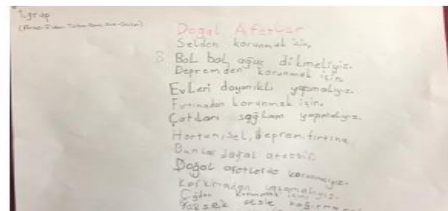 1. grup
Doğal Afetler
Selden korunmak için,
Bol bol ağaç dikmeliyiz.
Depremden korunmak için,
Evleri dayanıklı yapmalıyız.
Fırtınadan korunmak için,
Çatıları sağlam yapmalıyız.
Hortum, sel, deprem, fırtına
Bunlar doğal afettir.
Doğal afetlerden korunmalıyız.
Korkmadan yaşamalıyız.
Çığdan korunmak için,
Yüksek sesle bağırma